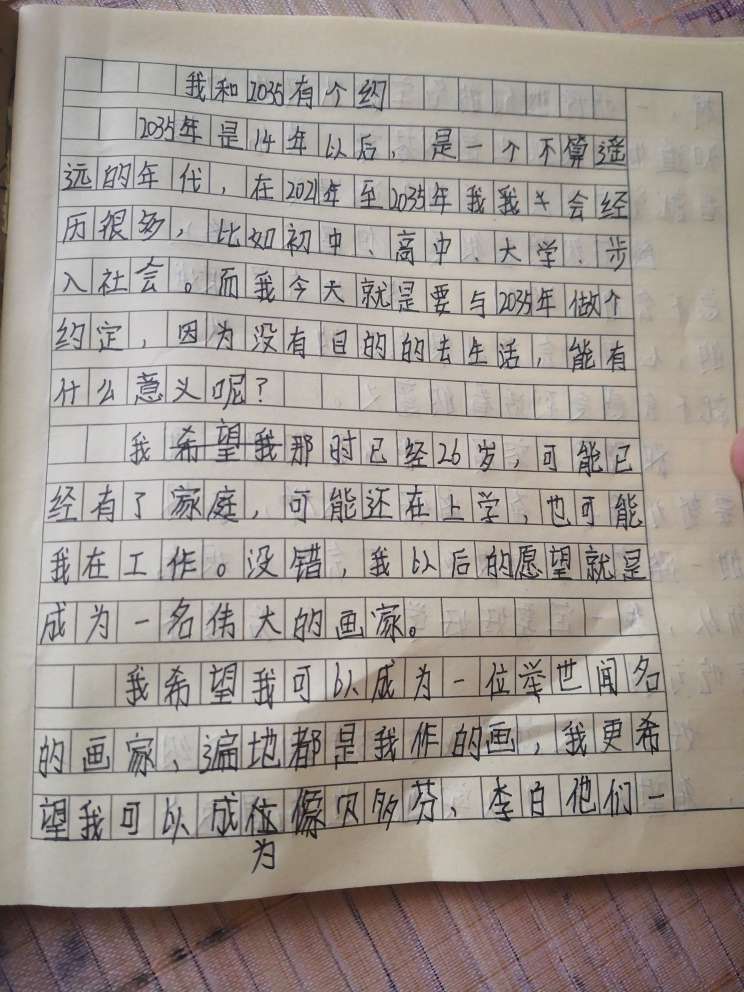 我和2035有个约
2035年是14年以后，是一个不算遥
远的年代，在2021年至2035年我我会经
历很多，比如初中、高中、大学、步
入社会。而我今天就是要与2035年做个
约定，因为没有目的的去生活，能有
什么意义呢？
我希望我那时已经26岁，可能已
经有了家庭，可能还在上学，也可能
我在工作。没错，我以后的愿望就是
成为一名伟大的画家。
我希望我可以成为一位举世闻名
的画家、遍地都是我作的画，我更希
望我可以成位像贝多芬、李白他们一
为